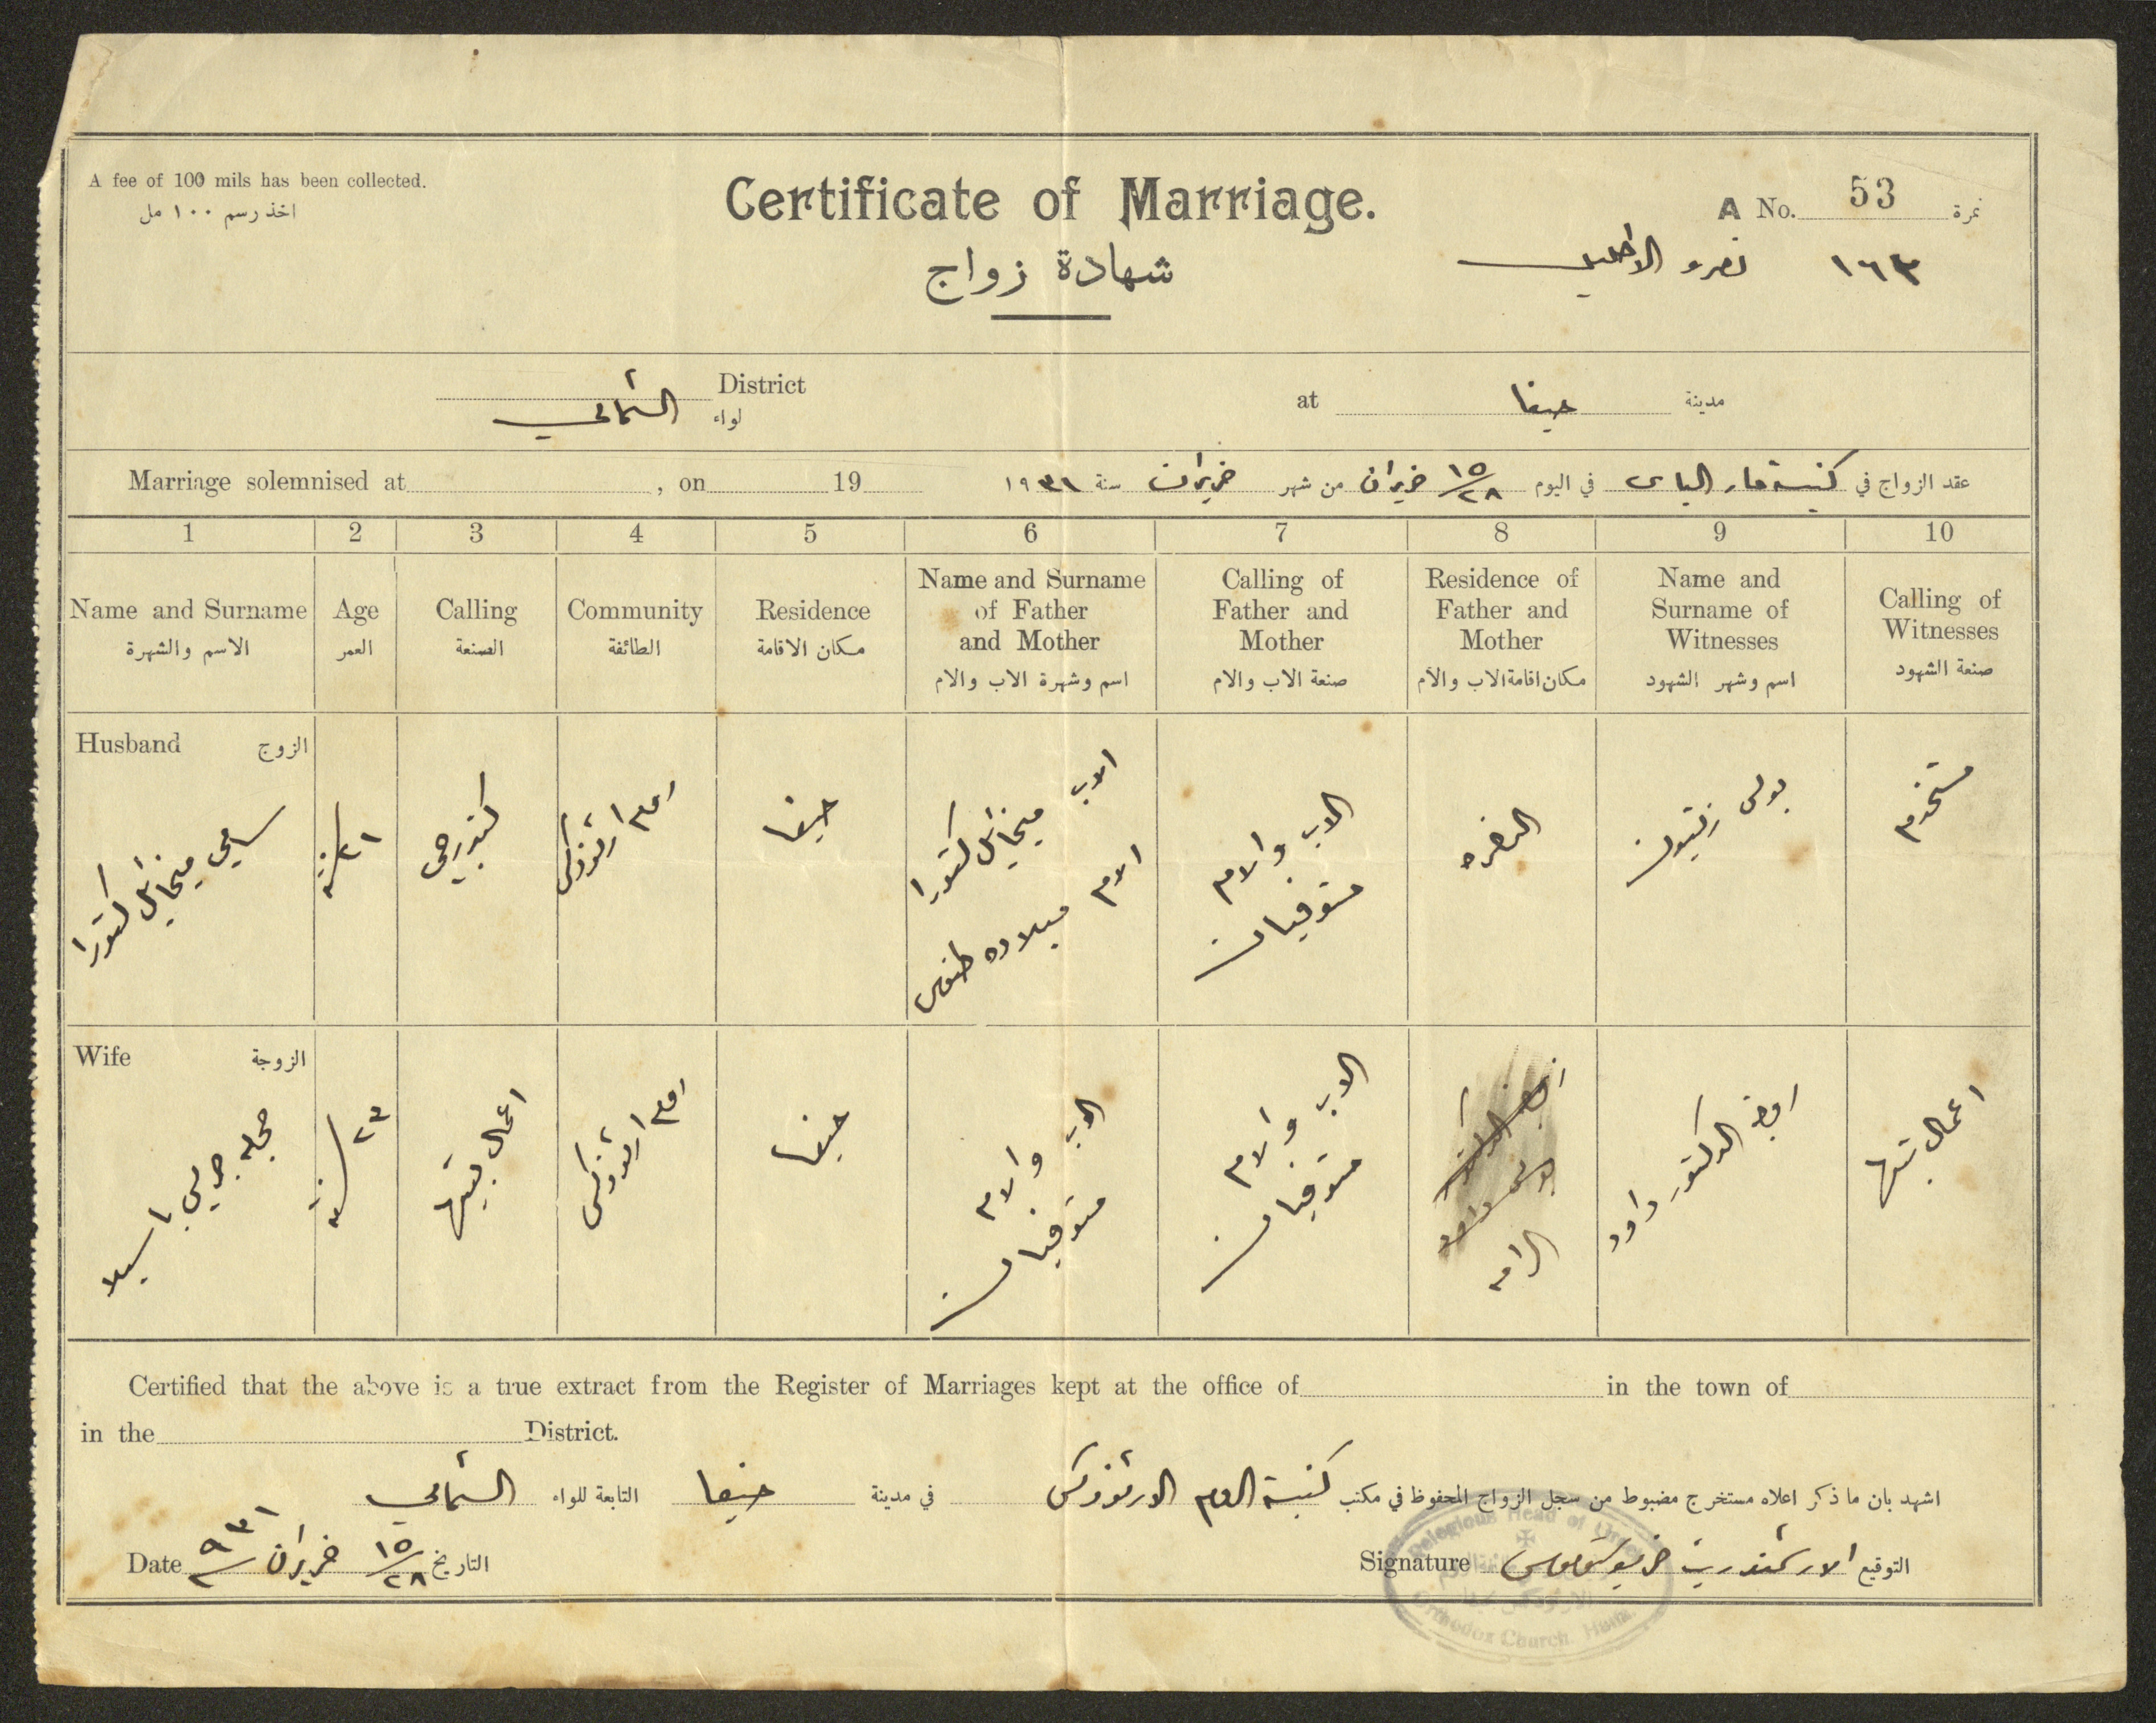 A fee of 100 mils has been collected.
اخذ رسم ١٠٠ مل
Certificate of Marriage.
شهادة زواج
A No. 53 نمرة
١٦٣
District الشمالي
لواء
at حيفا مدينة
Marriage solemnised at , on 19
عقد الزواج في كنيسة مار الياس في اليوم ١٥/٢٨ حزيران من شهر حزيران سنة ١٩٣١
1 2 3 4 5 6 7 8 9 10
Name and Surname
الاسم والشهرة
Age
العمر
Calling
الصنعة
Community
الطائفة
Residence
مكان الاقامة
Name and Surname
of Father
and Mother
اسم وشهرة الاب والام
Calling of
Father and
Mother
صنعة الاب والام
Residence of
Father and
Mother
مكان اقامة الاب والام
Name and
Surname of
Witnesses
اسم وشهر الشهود
Calling of
Witnesses
صنعة الشهود
Husband الزوج
سامي ميخائيل كتورا
٢١ سنة
كندرجي
روم ارثوذكس
حيفا
الاب ميخائيل كتورا
الام ميلاده طنوس
الاب والام
متوفيان
الناصره
بولس
مستخدم
Wife الزوجة
جريس باسيلا
٢٣ سنة
اعمال بيتها
روم ارثوذكس
حيفا
الاب والام
متوفيان
الاب والام
متوفيان
الرامه
الدكتور داود
اعمال بيتها
Certified that the above is a true extract from the Register of Marriages kept at the office of in the town of
in the District.
اشهد بان ما ذكر اعلاه مستخرج مضبوط من سجل الزواج المحفوظ في مكتب كنيسة الروم الارثوذكس في مدينة حيفا التابعة للواء الشمالي
Date ١٥/٢٨ حزيران ٩٣١ التاريخ
Signature الارشمندريت التوقيع
Religious Head of
Orthodox Church